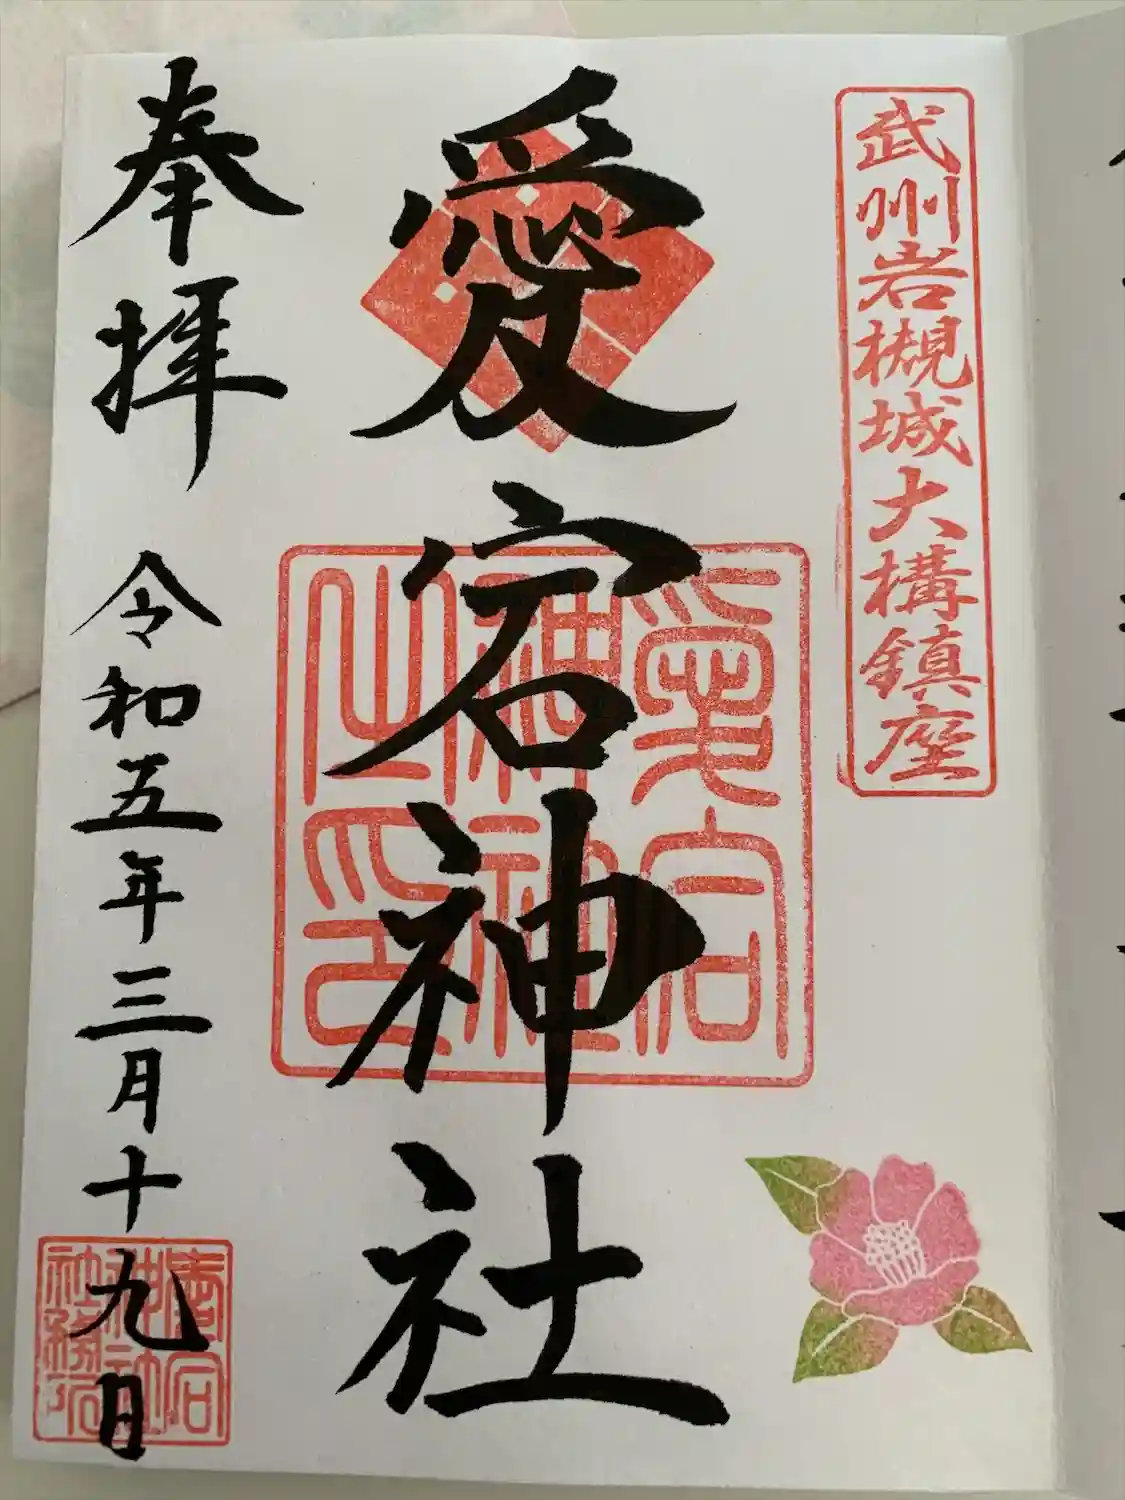 武州岩槻城大構鎮座
愛宕神社
愛宕神社之印
奉拝
令和五年三月十九日
愛宕神社社務所